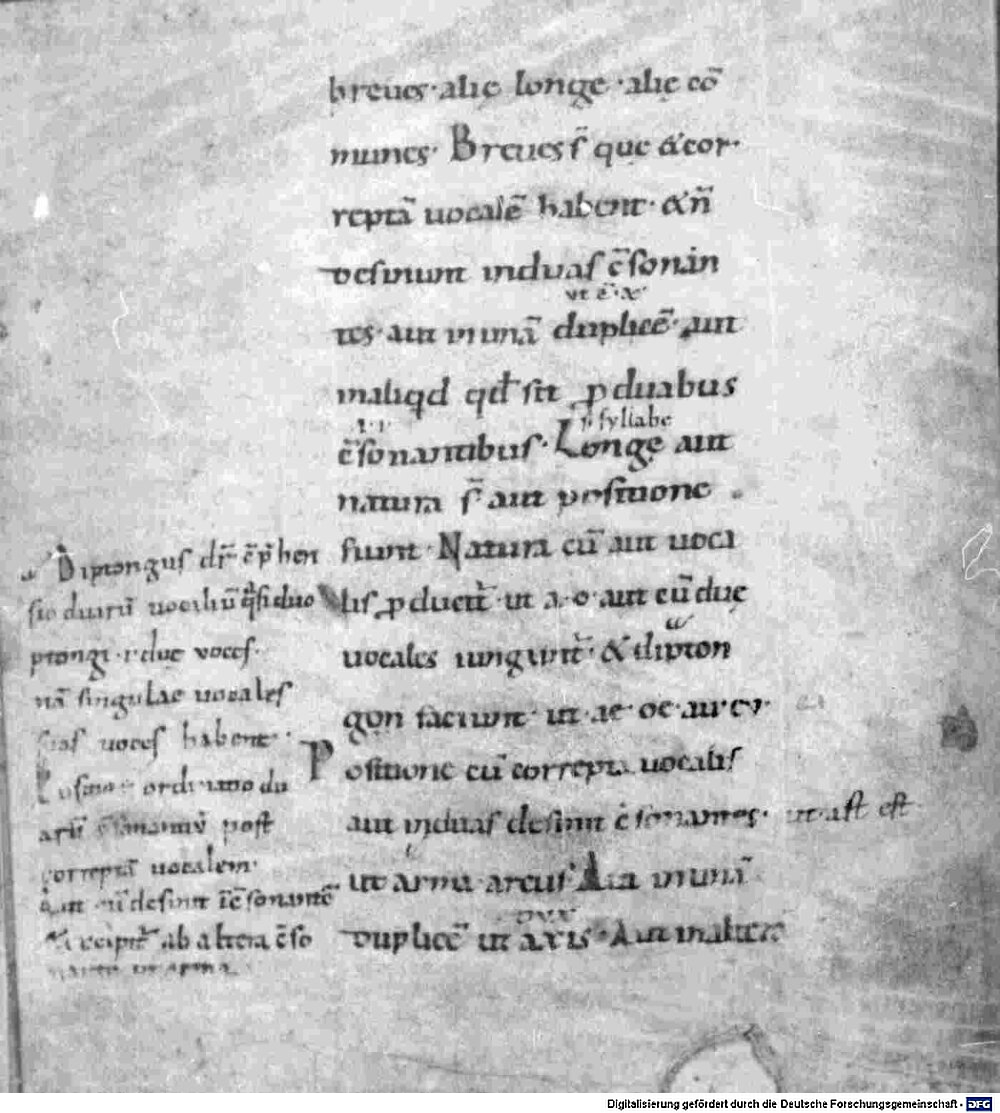 breues· alię longę · alię cō
munes· Breues s̄ que & cor·
reptā uocalē habent· & n̄
desinunt induas c̄sonan
ut ē x
tes· aut in unā duplicē· aut
in aliqd qd̄ sit p duabus
s̄ syllabe
c̄sonantibus· Longę aut
natura s̄ aut positione
fiunt· Natura cū aut uoca
lis p ducit̄· ut a· o· aut cū duę
uocales iungunt̄· & dipton
gon faciunt· ut· ae· oe· au· eu·
Positione cū correpta uocalis
aut induas desinit c̄sonantes· ut· ast est
ut arma· arcus· Aut in unā
duplicē ut axis· Aut in alterā
Diptongus dr̄ c̄p̄hen
sio duarū uocaliū q̄si duo
ptongi· ł duę voces·
nā singulae uocales
suas uoces habent·
duarū c̄sonantiū post
correptā uocalem·
aut cū desinit ī c̄sonantē
& excipit̄ ab altera c̄so